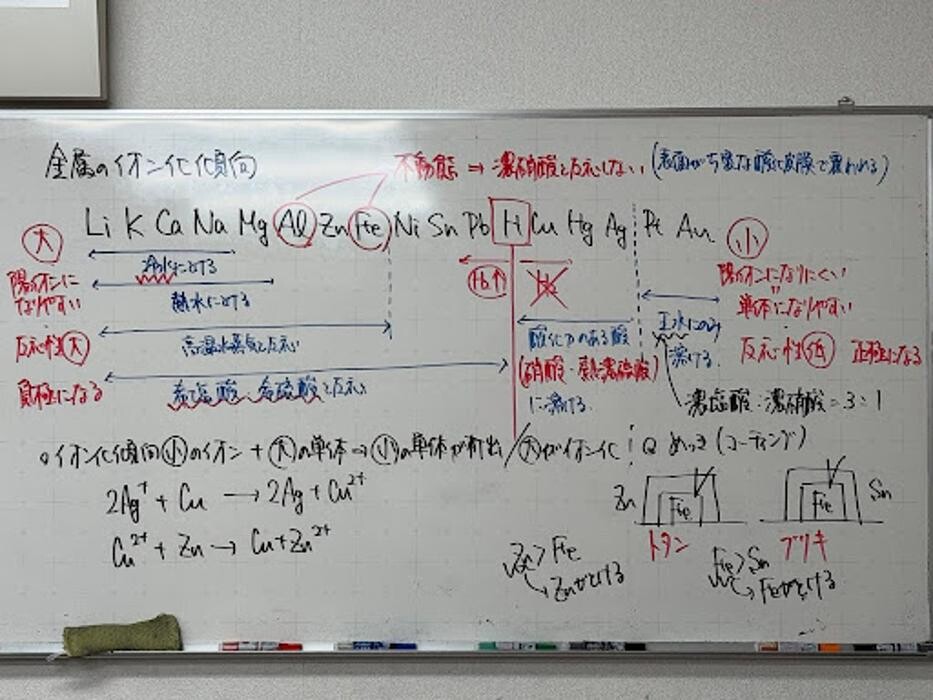 金属のイオン化傾向
不動態 ⇒ 濃硝酸と反応しない (表面がち密な酸化皮膜で覆われる)
Li K Ca Na Mg Al Zn Fe Ni Sn Pb H Cu Hg Ag Pt Au
大 小
陽イオンになりやすい
反応性大
負極になる
冷水にとける
熱水にとける
高温水蒸気と反応
希塩酸・希硫酸と反応
H₂↑
H₂
酸化力のある酸
(硝酸・熱濃硫酸)
に溶ける
王水にのみ
溶ける
濃塩酸:濃硝酸=3:1
陽イオンになりにくい
〃
単体になりやすい
反応性低 正極になる
○イオン化傾向小のイオン + 大の単体 → 小の単体が析出/大がイオン化
2Ag⁺ + Cu → 2Ag + Cu²⁺
Cu²⁺ + Zn → Cu + Zn²⁺
めっき (コーティング)
Zn Fe トタン
Fe Sn ブリキ
Zn > Fe
→ Znがとける
Fe > Sn
→ Feがとける